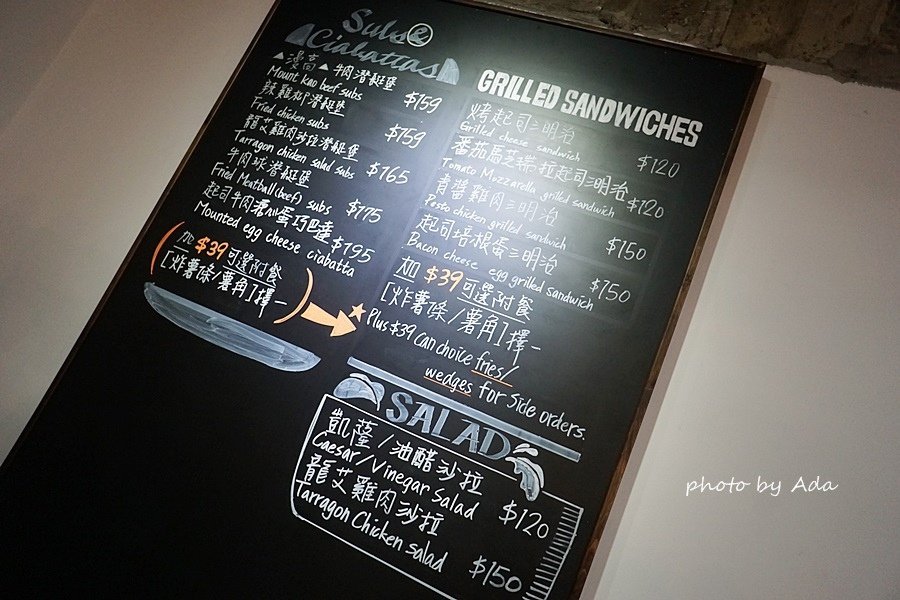 Subs &
Ciabattas
▲漫高▲牛肉潛艇堡
Mount kao beef subs $159
辣雞柳潛艇堡
Fried chicken subs $159
龍艾雞肉沙拉潛艇堡
Tarragon chicken salad subs $165
牛肉球潛艇堡
Fried Meatball(beef) subs $175
起司牛肉起司蛋巧巴達
Mounted egg cheese ciabatta $195
加 $39 可選附餐
[炸薯條/薯角]擇一
GRILLED SANDWICHES
烤起司三明治
Grilled cheese sandwich $120
番茄馬芝瑞拉起司三明治
Tomato Mozzarella grilled sandwich $120
青醬雞肉三明治
Pesto chicken grilled sandwich $150
起司培根蛋三明治
Bacon cheese egg grilled sandwich $150
加 $39 可選附餐
[炸薯條/薯角]擇一
Plus $39 can choice fries/
wedges for side orders.
SALAD
凱薩/油醋沙拉
Caesar/Vinegar Salad $120
龍艾雞肉沙拉
Tarragon Chicken salad $150
photo by Ada